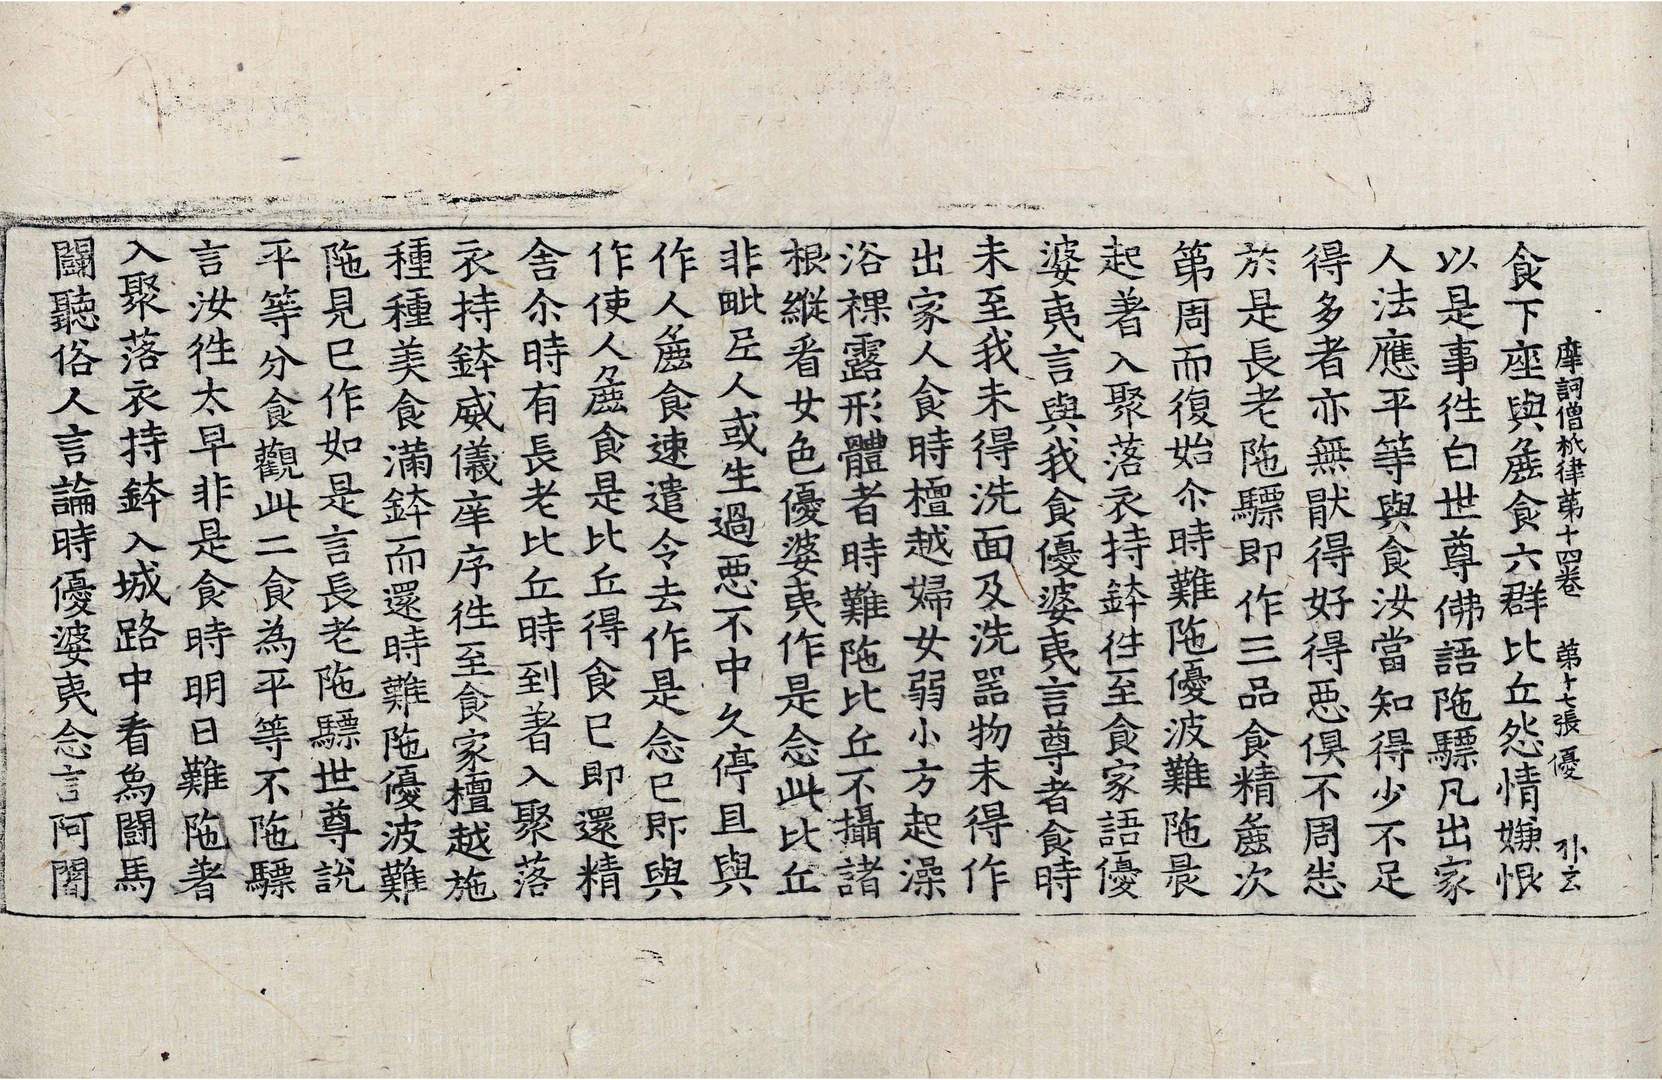 摩訶僧祇律第十四卷　第十七張　優　朴玄
食下座與麁食六群比丘怨情嫌恨
以是事徃白世尊佛語陁驃凡出家
人法應平等與食汝當知得少不足
得多者亦無猒得好得惡俱不周悉
於是長老陁驃即作三品食精麁次
第周而復始尒時難陁優波難陁晨
起著入聚落衣持鉢徃至食家語優
婆夷言與我食優婆夷言尊者食時
未至我未得洗面及洗器物未得作
出家人食時檀越婦女弱小方起澡
浴裸露形體者時難陁比丘不攝諸
根縱看女色優婆夷作是念此比丘
非毗尼人或生過惡不中久停且與
作人麁食速遣令去作是念已即與
作使人麁食是比丘得食已即還精
舍尒時有長老比丘時到著入聚落
衣持鉢威儀庠序徃至食家檀越施
種種美食滿鉢而還時難陁優波難
陁見已作如是言長老陁驃世尊說
平等分食觀此二食為平等不陁驃
言汝徃太早非是食時明日難陁著
入聚落衣持鉢入城路中看鳥鬪馬
鬪聽俗人言論時優婆夷念言阿闍